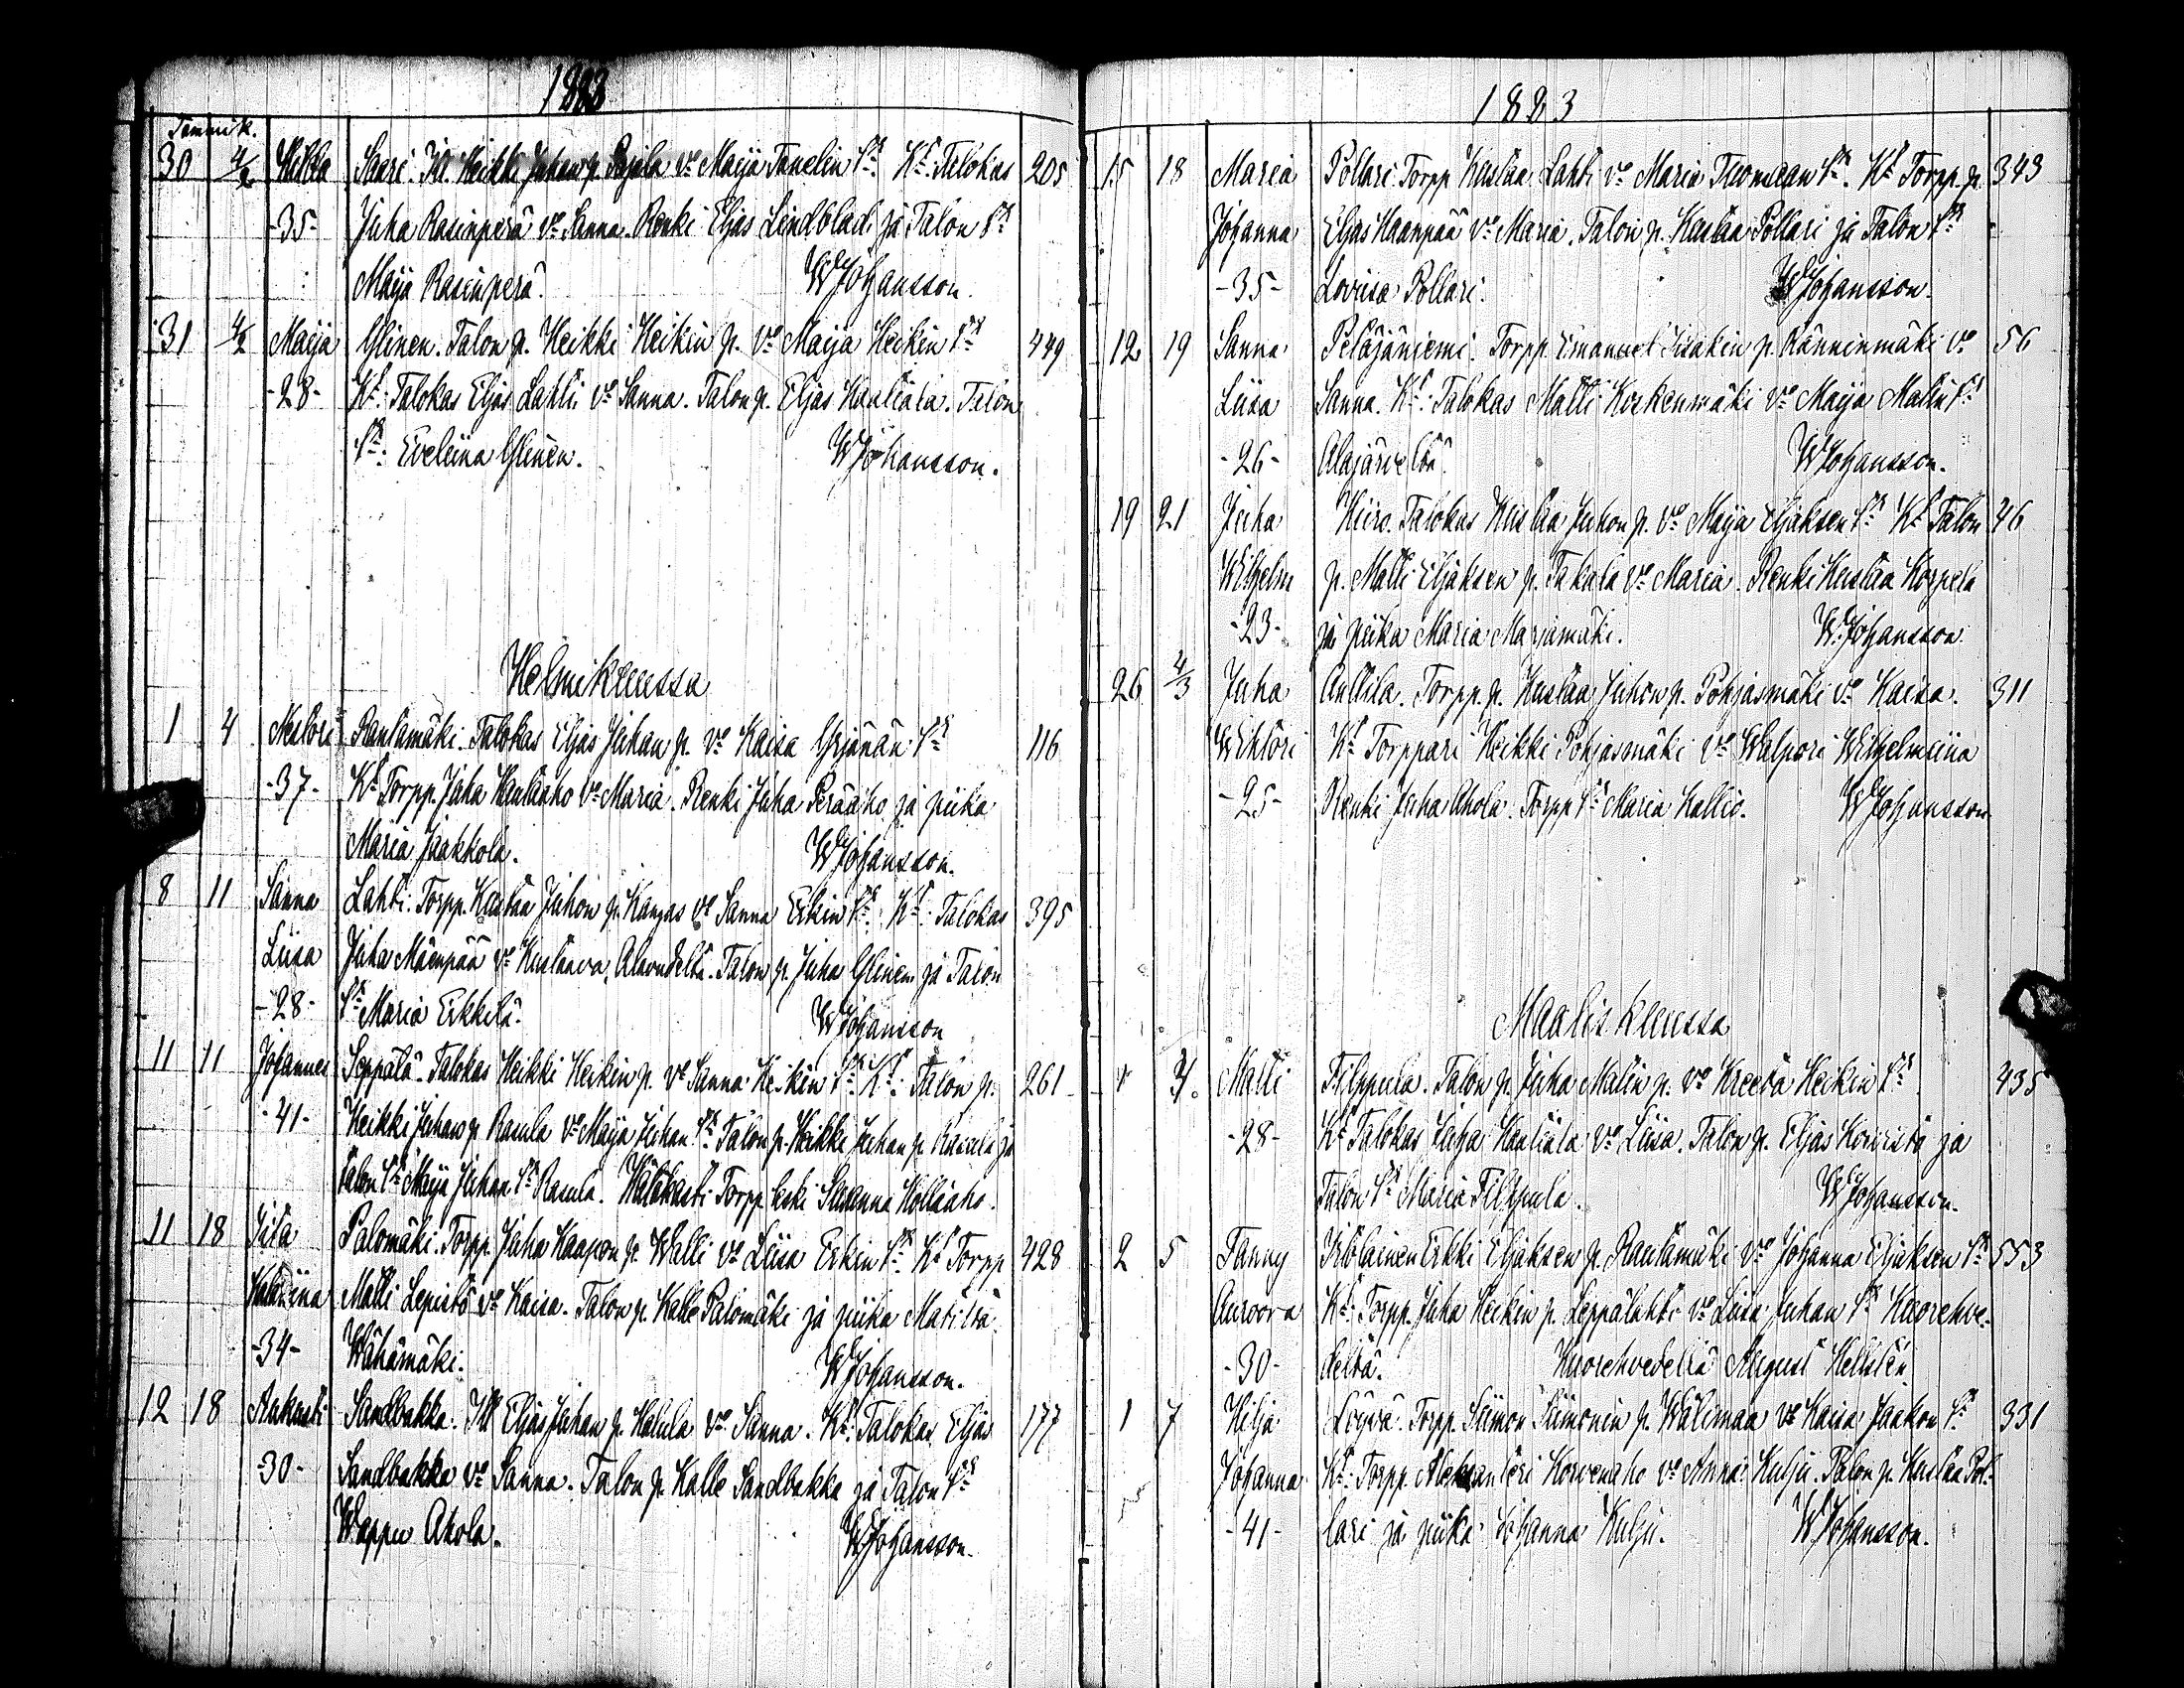 1883
Tammik.
30 4/2 Hilda Saari. Itl. Heikki Juhan p. Pajala vo Maija Tanelin tr. Kt. Talokas 205
-35- Juha Rasinperä vo Sanna. Renki Eljas Lindblad ja Talon tr
Maija Rasinperä. WJohansson.
31 4/2 Maija Ylinen. Talon p. Heikki Heikin p. vo Maija Heikin tr 449
-28- Kt. Talokas Eljas Lahti vo Sanna. Talon p. Eljas Hautala. Talon
tr. Eveliina Ylinen. WJohansson.
Helmikuussa
1 4 Nestori Rantamäki. Talokas Eljas Juhan p. vo Kaisa Yrjänän tr 116
-37- Kt. Torpp. Juha Hautaaho vo Maria. Renki Juha Perääho ja piika
Maria Jaakkola. WJohansson.
8 11 Sanna Lahti. Torpp. Kustaa Juhon p. Kangas vo Sanna Erkin tr. Kt. Talokas 395
Liisa Juha Mäenpää vo Kustaava, Alavudelta. Talon p. Juha Ylinen ja Talon
-28- tr Maria Erkkilä. WJohansson
11 11 Johannes Seppälä. Talokas Heikki Heikin p. vo Sanna Heikin tr. Kt. Talon p. 261
-41- Heikki Juhan p. Rasula vo Maija Juhan tr. Talon p. Heikki Juhan p. Rasula ja
Talon tr Maija Juhan tr Rasula. Hätäkasti Torpp. leski Susanna Hollaaho.
11 18 Iita Palomäki. Torpp. Juha Kaapon p. Walli vo Liisa Erkin tr. Kt. Torpp. 428
Katariina Matti Lepistö vo Kaisa. Talon p. Kalle Palomäki ja piika Matilda
-34- Wähämäki. WJohansson.
12 18 Aukusti Sandbakka. Itl. Eljas Juhan p. Hakula vo Sanna. Kt. Talokas Eljas 177
-30- Sandbakka vo Sanna. Talon p. Kalle Sandbakka ja Talon tr
Wappu Ahola. WJohansson.
1883
15 18 Maria Pollari. Torpp. Kustaa Lahti vo Maria Tuomaan tr. Kt. Torpp. p. 343
Johanna Eljas Haanpää vo Maria. Talon p. Kustaa Pollari ja Talon tr
-35- Loviisa Pollari. WJohansson.
12 19 Sanna Petäjäniemi. Torpp. Emanuel Iisakin p. Ränninmäki vo 56
Liisa Sanna. Kt. Talokas Matti Koskenmäki vo Maija Matin tr
-26- Alajärveltä. WJohansson.
19 21 Juha Hiiro. Talokas Kustaa Juhon p. vo Maija Eljaksen tr Kt Talon 46
Wilhelm p. Matti Eljaksen p. Takala vo Maria. Renki Kustaa Korpela
-23- ja piika Maria Marjamäki. WJohansson.
26 4/3 Juha Anttila. Torpp. p. Kustaa Juhon p. Pohjasmäki vo Kaisa. 311
Wihtori Kt Torppari Heikki Pohjasmäki vo Walpori Wilhelmiina
-25- Renki Juha Ahola. Torpp tr Maria Kallio. WJohansson.
Maaliskuussa
Matti Filppula. Talon p. Juha Matin p. vo Kreeta Heikin tr 435
-28- Kt. Talokas Juha Hautala vo Liisa. Talon p. Eljas Koivisto ja
Talon tr Maria Filppula. WJohansson.
2 5 Fanny Itsellinen Erkki Eljaksen p. Rantamäki vo Johanna Eljaksen tr 553
Auroora Kt. Torpp. Juha Heikin p. Leppälahti vo Liisa Juhan tr Kuorehve-
-30- deltä. Kuorehvedellä August Hellstén
1 7 Hilja Löyvä. Torpp. Siimon Siimonin p. Wälimaa vo Kaisa Jaakon tr 331
Johanna Kt. Torpp. Aleksanteri Korvenaho vo Anna Kulju. Talon p. Kustaa Pol-
-41- lari ja piika Johanna Kulju. WJohansson.